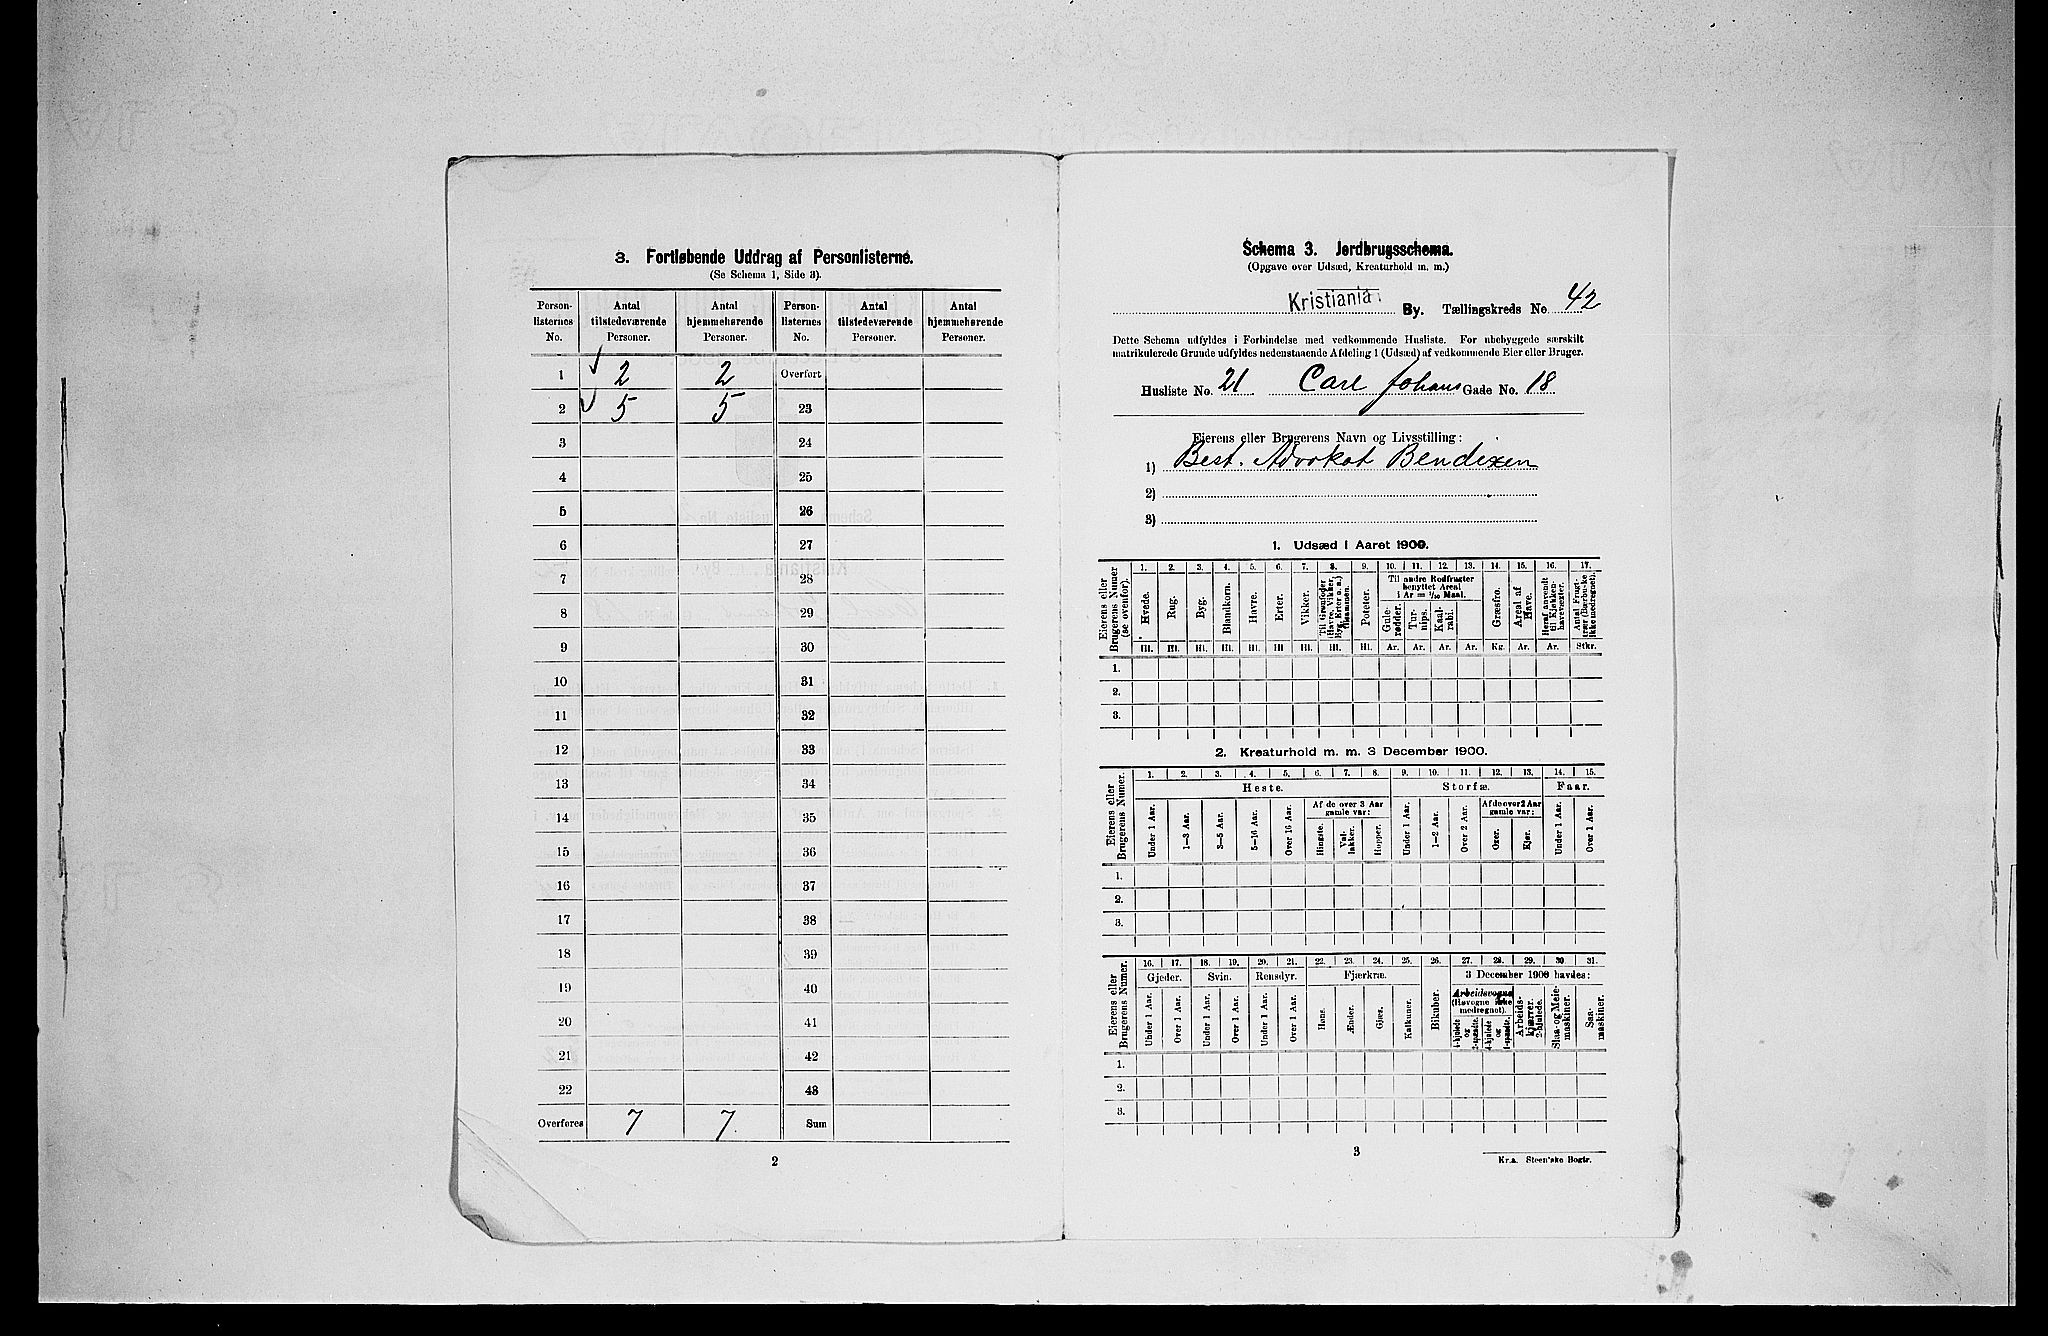 3. Fortløbende Uddrag af Personlisterne.
(Se Schema 1, Side 3).
Person-listernes No. Antal tilstedeværende Personer. Antal hjemmehørende Personer. Person-listernes No. Antal tilstedeværende Personer. Antal hjemmehørende Personer.
1 2 2 Overført
2 5 5 23
3 24
4 25
5 26
6 27
7 28
8 29
9 30
10 31
11 32
12 33
13 34
14 35
15 36
16 37
17 38
18 39
19 40
20 41
21 42
22 43
Overføres 7 7 Sum
2
Schema 3. Jordbrugsschema.
(Opgave over Udsæd, Kreaturhold m. m.)
Kristiania By. Tællingskreds No. 42
Dette Schema udfyldes i Forbindelse med vedkommende Husliste. For ubebyggede særskilt
matrikulerede Grunde udfyldes nedenstaaende Afdeling 1 (Udsæd) af vedkommende Eier eller Bruger.
Husliste No. 21 Carl Johans Gade No. 18
Eierens eller Brugerens Navn og Livsstilling:
1) Best. Advokat Bendixen
2)
3)
1. Udsæd i Aaret 1900.
Eierens eller Brugerens Numer (se ovenfor).
1. 2. 3. 4. 5. 6. 7. 8. 9. 10. 11. 12. 13. 14. 15. 16. 17.
Hvede. Rug. Byg. Blandkorn. Havre. Erter. Vikker. Til Grønfoder Havre, Vikker, Byg, Erter o. a.) tilsammen. Poteter.
Til andre Rodfrugter benyttet Areal i Ar = 1/10 Maal.
Gule-rødder. Tur-nips. Kaal-rabi. Græsfrø. Areal af Have. Heraf anvendt til Kjøkken-havevæxter. Antal Frugt-trær (Bærbuske ikke medregnet).
Hl. Hl. Hl. Hl. Hl. Hl. Hl. Hl. Hl. Ar. Ar. Ar. Ar. Kg. Ar. Ar. Stkr.
1.
2.
3.
2. Kreaturhold m. m. 3 December 1900.
Eierens eller Brugerens Numer.
1. 2. 3. 4. 5. 6. 7. 8. 9. 10. 11. 12. 13. 14. 15.
Heste. Storfæ. Faar.
Under 1 Aar. 1–3 Aar. 3–5 Aar. 5–16 Aar. Over 16 Aar.
Af de over 3 Aar gamle var:
Hingste. Val-lakker. Hopper.
Under 1 Aar. 1–2 Aar. Over 2 Aar.
Af de over 2 Aar gamle var:
Oxer. Kjør.
Under 1 Aar. Over 1 Aar.
1.
2.
3.
Eierens eller Brugerens Numer.
16. 17. 18. 19. 20. 21. 22. 23. 24. 25. 26. 27. 28. 29. 30 31.
Gjeder. Svin. Rensdyr. Fjærkræ. 3 December 1900 havdes:
Under 1 Aar. Over 1 Aar. Under 1 Aar. Over 1 Aar. Under 1 Aar. Over 1 Aar. Høns. Ænder. Gjæs. Kalkuner. Bikuber.
Arbeidsvogne (Høvogne ikke medregnet).
4-hjulede og 2-spændte. 4-hjulede og 1-spændte. Arbeids-kjærrer, 2-hjulede. Slaa- og Meie-maskiner. Saa-maskiner.
1.
2.
3.
3
Kr.a. Steen'ske Bogtr.